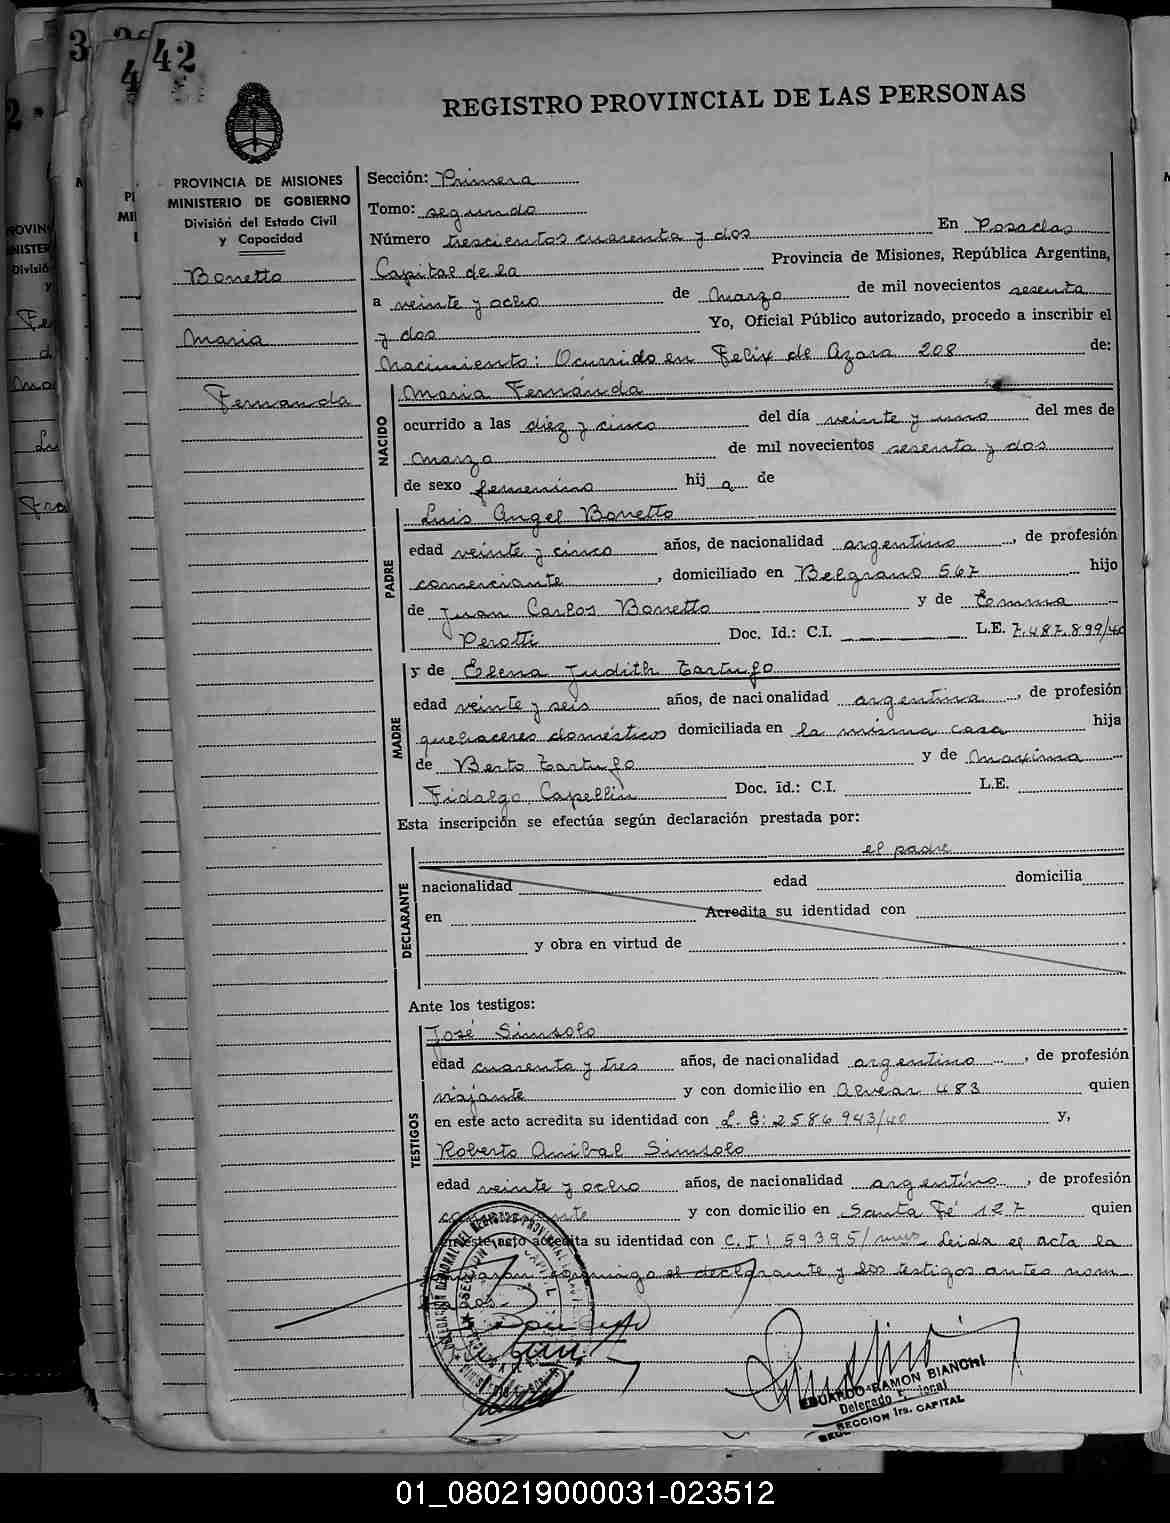 42
REGISTRO PROVINCIAL DE LAS PERSONAS
PROVINCIA DE MISIONES
MINISTERIO DE GOBIERNO
División del Estado Civil
y Capacidad
Bonetto
Maria
Fernanda
Sección: Primera
Tomo: segundo
Número trescientos cuarenta y dos En Posadas
Capital de la Provincia de Misiones, República Argentina,
a veinte y ocho de Marzo de mil novecientos sesenta
y dos Yo, Oficial Público autorizado, procedo a inscribir el
Nacimiento: Ocurrido en Felix de Azara 208 de:
NACIDO
Maria Fernánda
ocurrido a las diez y cinco del día veinte y uno del mes de
Marzo de mil novecientos sesenta y dos
de sexo femenino hij a de
PADRE
Luis Angel Bonetto
edad veinte y cinco años, de nacionalidad argentino, de profesión
comerciante, domiciliado en Belgrano 567 hijo
de Juan Carlos Bonetto y de Emma
Perotti Doc. Id.: C.I. L.E. 7.487.899/40
MADRE
y de Elena Judith Tartufo
edad veinte y seis años, de nacionalidad argentina, de profesión
quehaceres domésticos domiciliada en la misma casa hija
de Berto Tartufo y de Maxima
Fidalgo Capellin Doc. Id.: C.I. L.E.
Esta inscripción se efectúa según declaración prestada por:
DECLARANTE
el padre
nacionalidad edad domicilia
en Acredita su identidad con
y obra en virtud de
Ante los testigos:
TESTIGOS
José Simsolo
edad cuarenta y tres años, de nacionalidad argentino, de profesión
viajante y con domicilio en Alvear 483 quien
en este acto acredita su identidad con L.E: 2586943/40 y,
Roberto Anibal Simsolo
edad veinte y ocho años, de nacionalidad argentino, de profesión
y con domicilio en Santa Fé 127 quien
en este acto acredita su identidad con C.I: 59395/ Leida el acta la
conmigo el declarante y los testigos antes nom
EDUARDO RAMON BIANCHI
Delegado
SECCION 1ra. CAPITAL
01_080219000031-023512